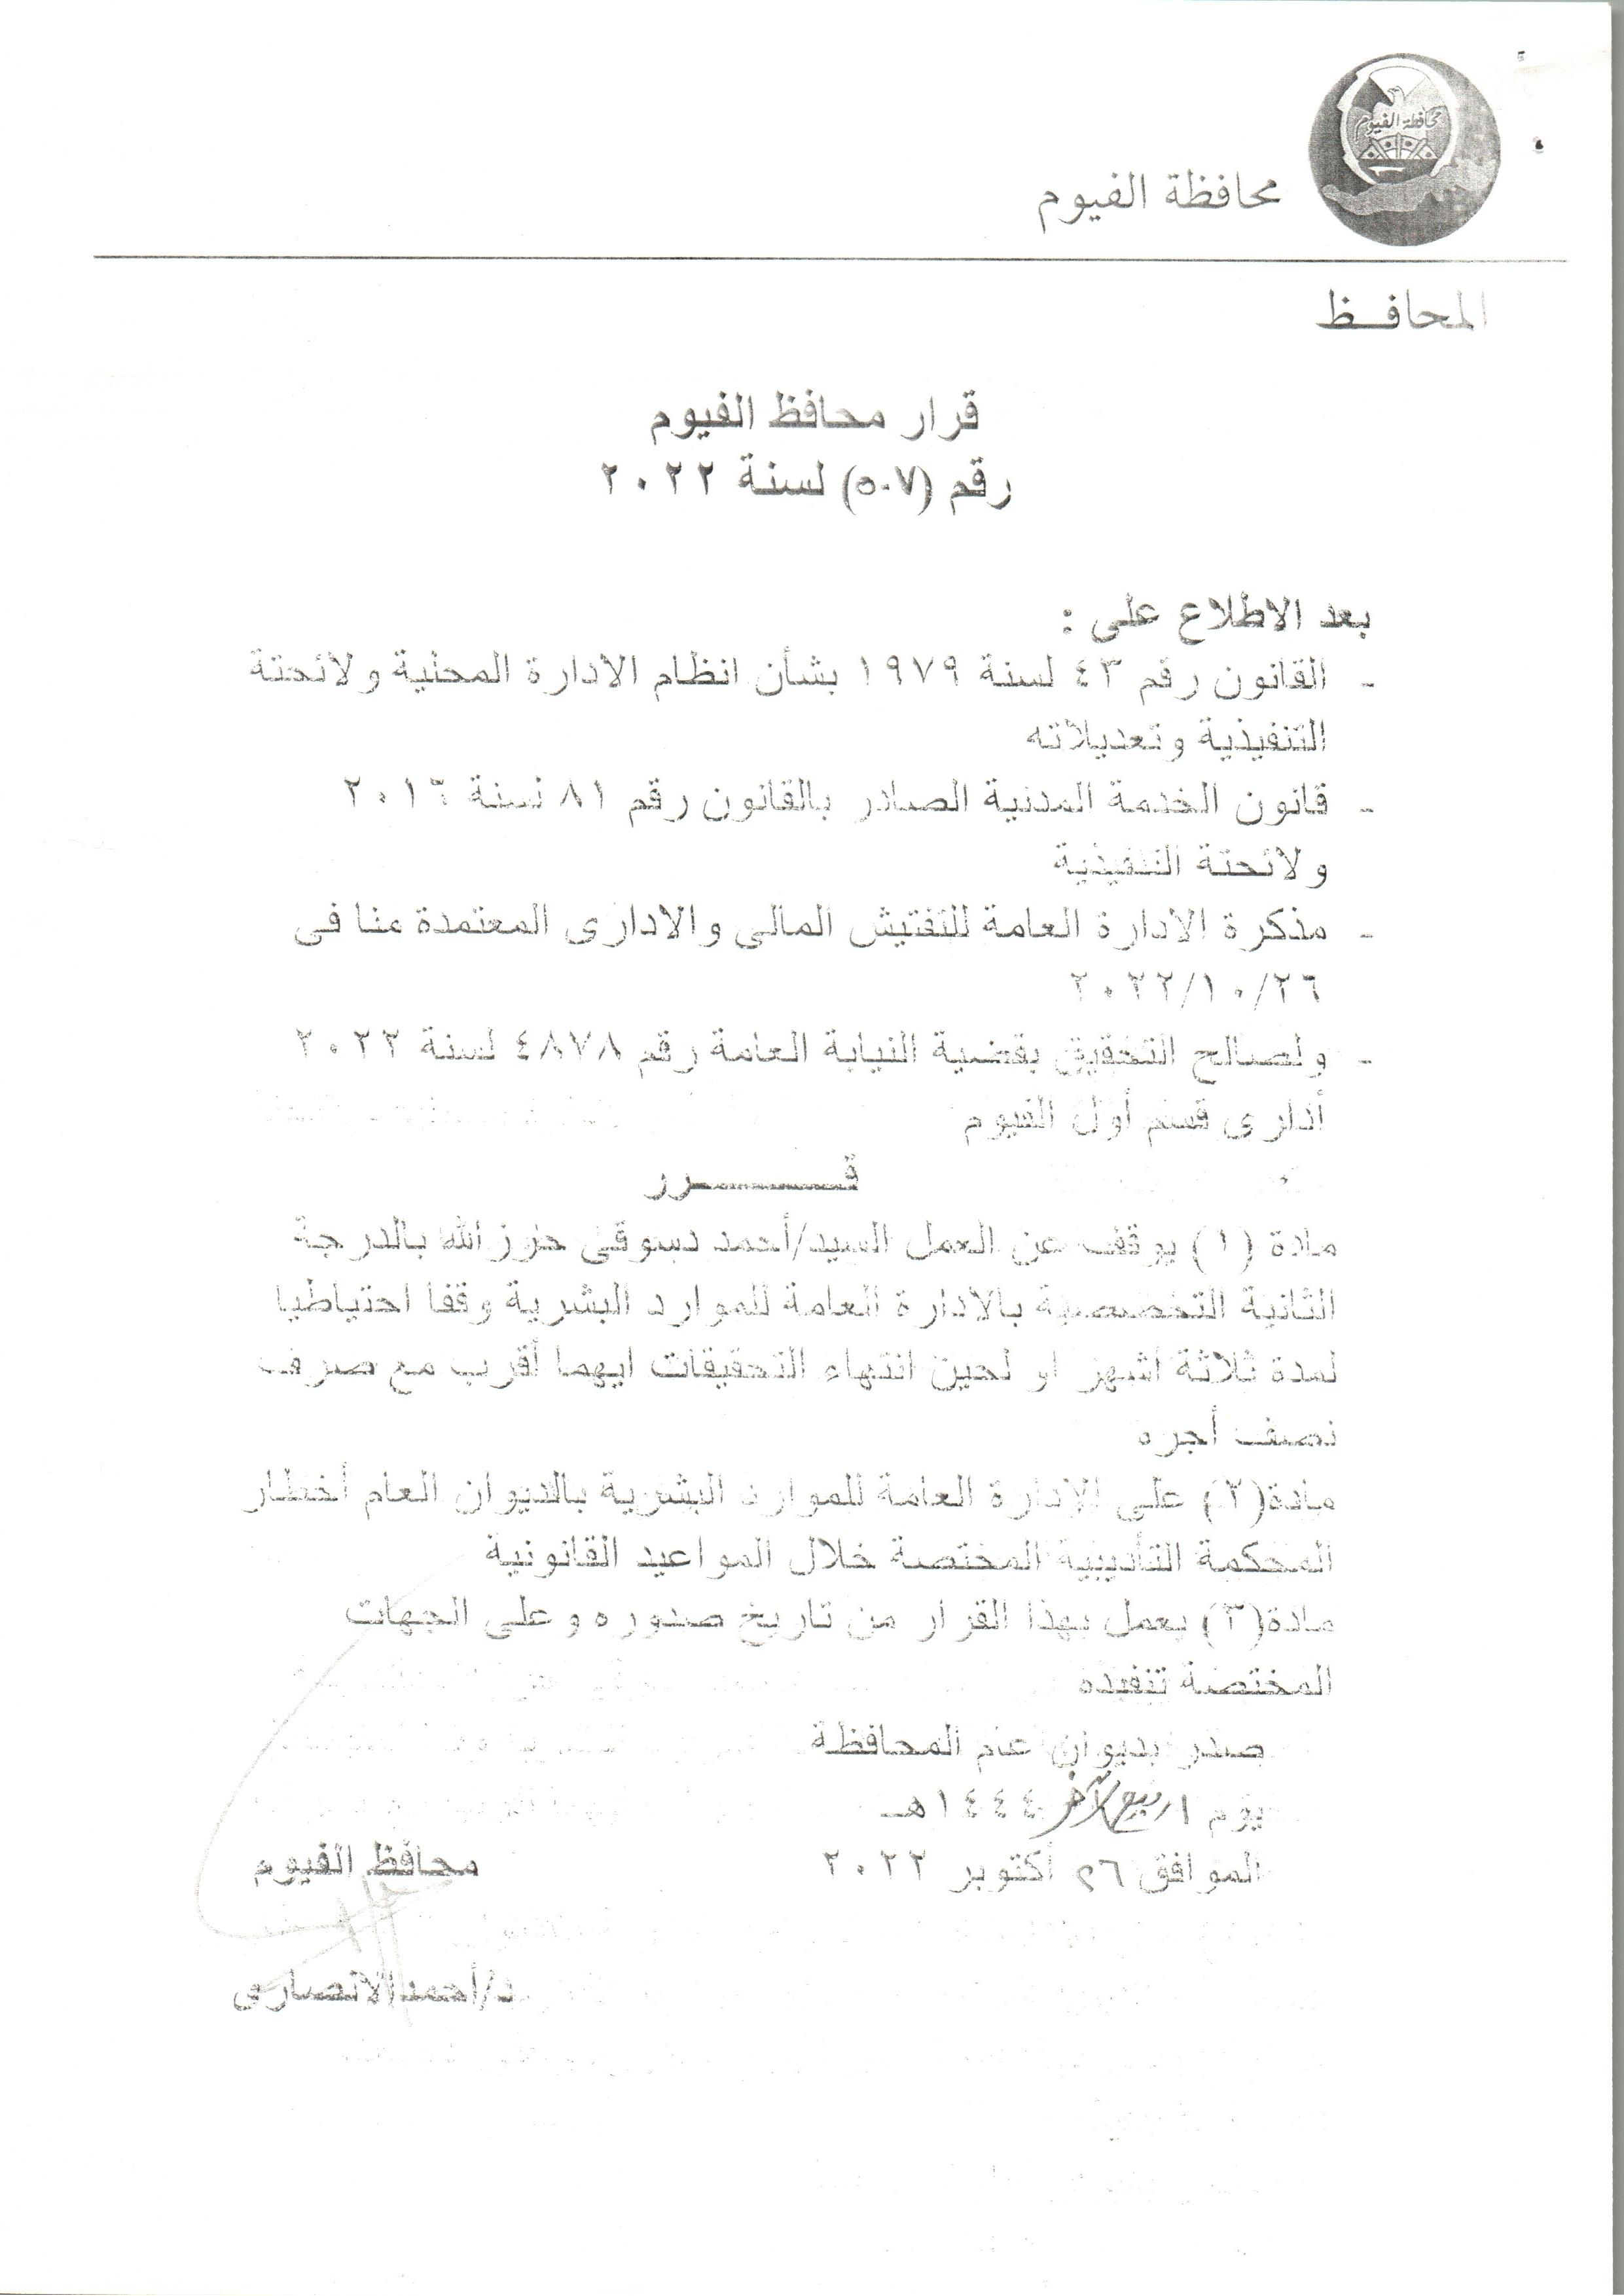 محافظة الفيوم
محافظة الفيوم
المحافــظ
قرار محافظ الفيوم
رقم (٥٠٧) لسنة ٢٠٢٢
بعد الاطلاع على :
- القانون رقم ٤٣ لسنة ١٩٧٩ بشأن انظام الادارة المحلية ولائحتة
التنفيذية وتعديلاته
- قانون الخدمة المدنية الصادر بالقانون رقم ٨١ لسنة ٢٠١٦
ولائحتة التنفيذية
- مذكرة الادارة العامة للتفتيش المالى والادارى المعتمدة منا فى
٢٠٢٢/١٠/٢٦
- ولصالح التحقيق بقضية النيابة العامة رقم ٤٨٧٨ لسنة ٢٠٢٢
أدارى قسم أول الفيوم
قـــــــرر
مادة (١) يوقف عن العمل السيد/أحمد دسوقى حرزالله بالدرجة
الثانية التخصصية بالادارة العامة للموارد البشرية وقفا احتياطيا
لمدة ثلاثة أشهر او لحين انتهاء التحقيقات ايهما أقرب مع صرف
نصف أجره
مادة(٢) على الادارة العامة للموارد البشرية بالديوان العام أخطار
المحكمة التأديبية المختصة خلال المواعيد القانونية
مادة(٣) يعمل بهذا القرار من تاريخ صدوره وعلى الجهات
المختصة تنفيذه
صدر بديوان عام المحافظة
يوم ١ ربيع الآخر ١٤٤٤هـ
الموافق ٢٦ أكتوبر ٢٠٢٢
محافظ الفيوم
د/أحمد الانصارى